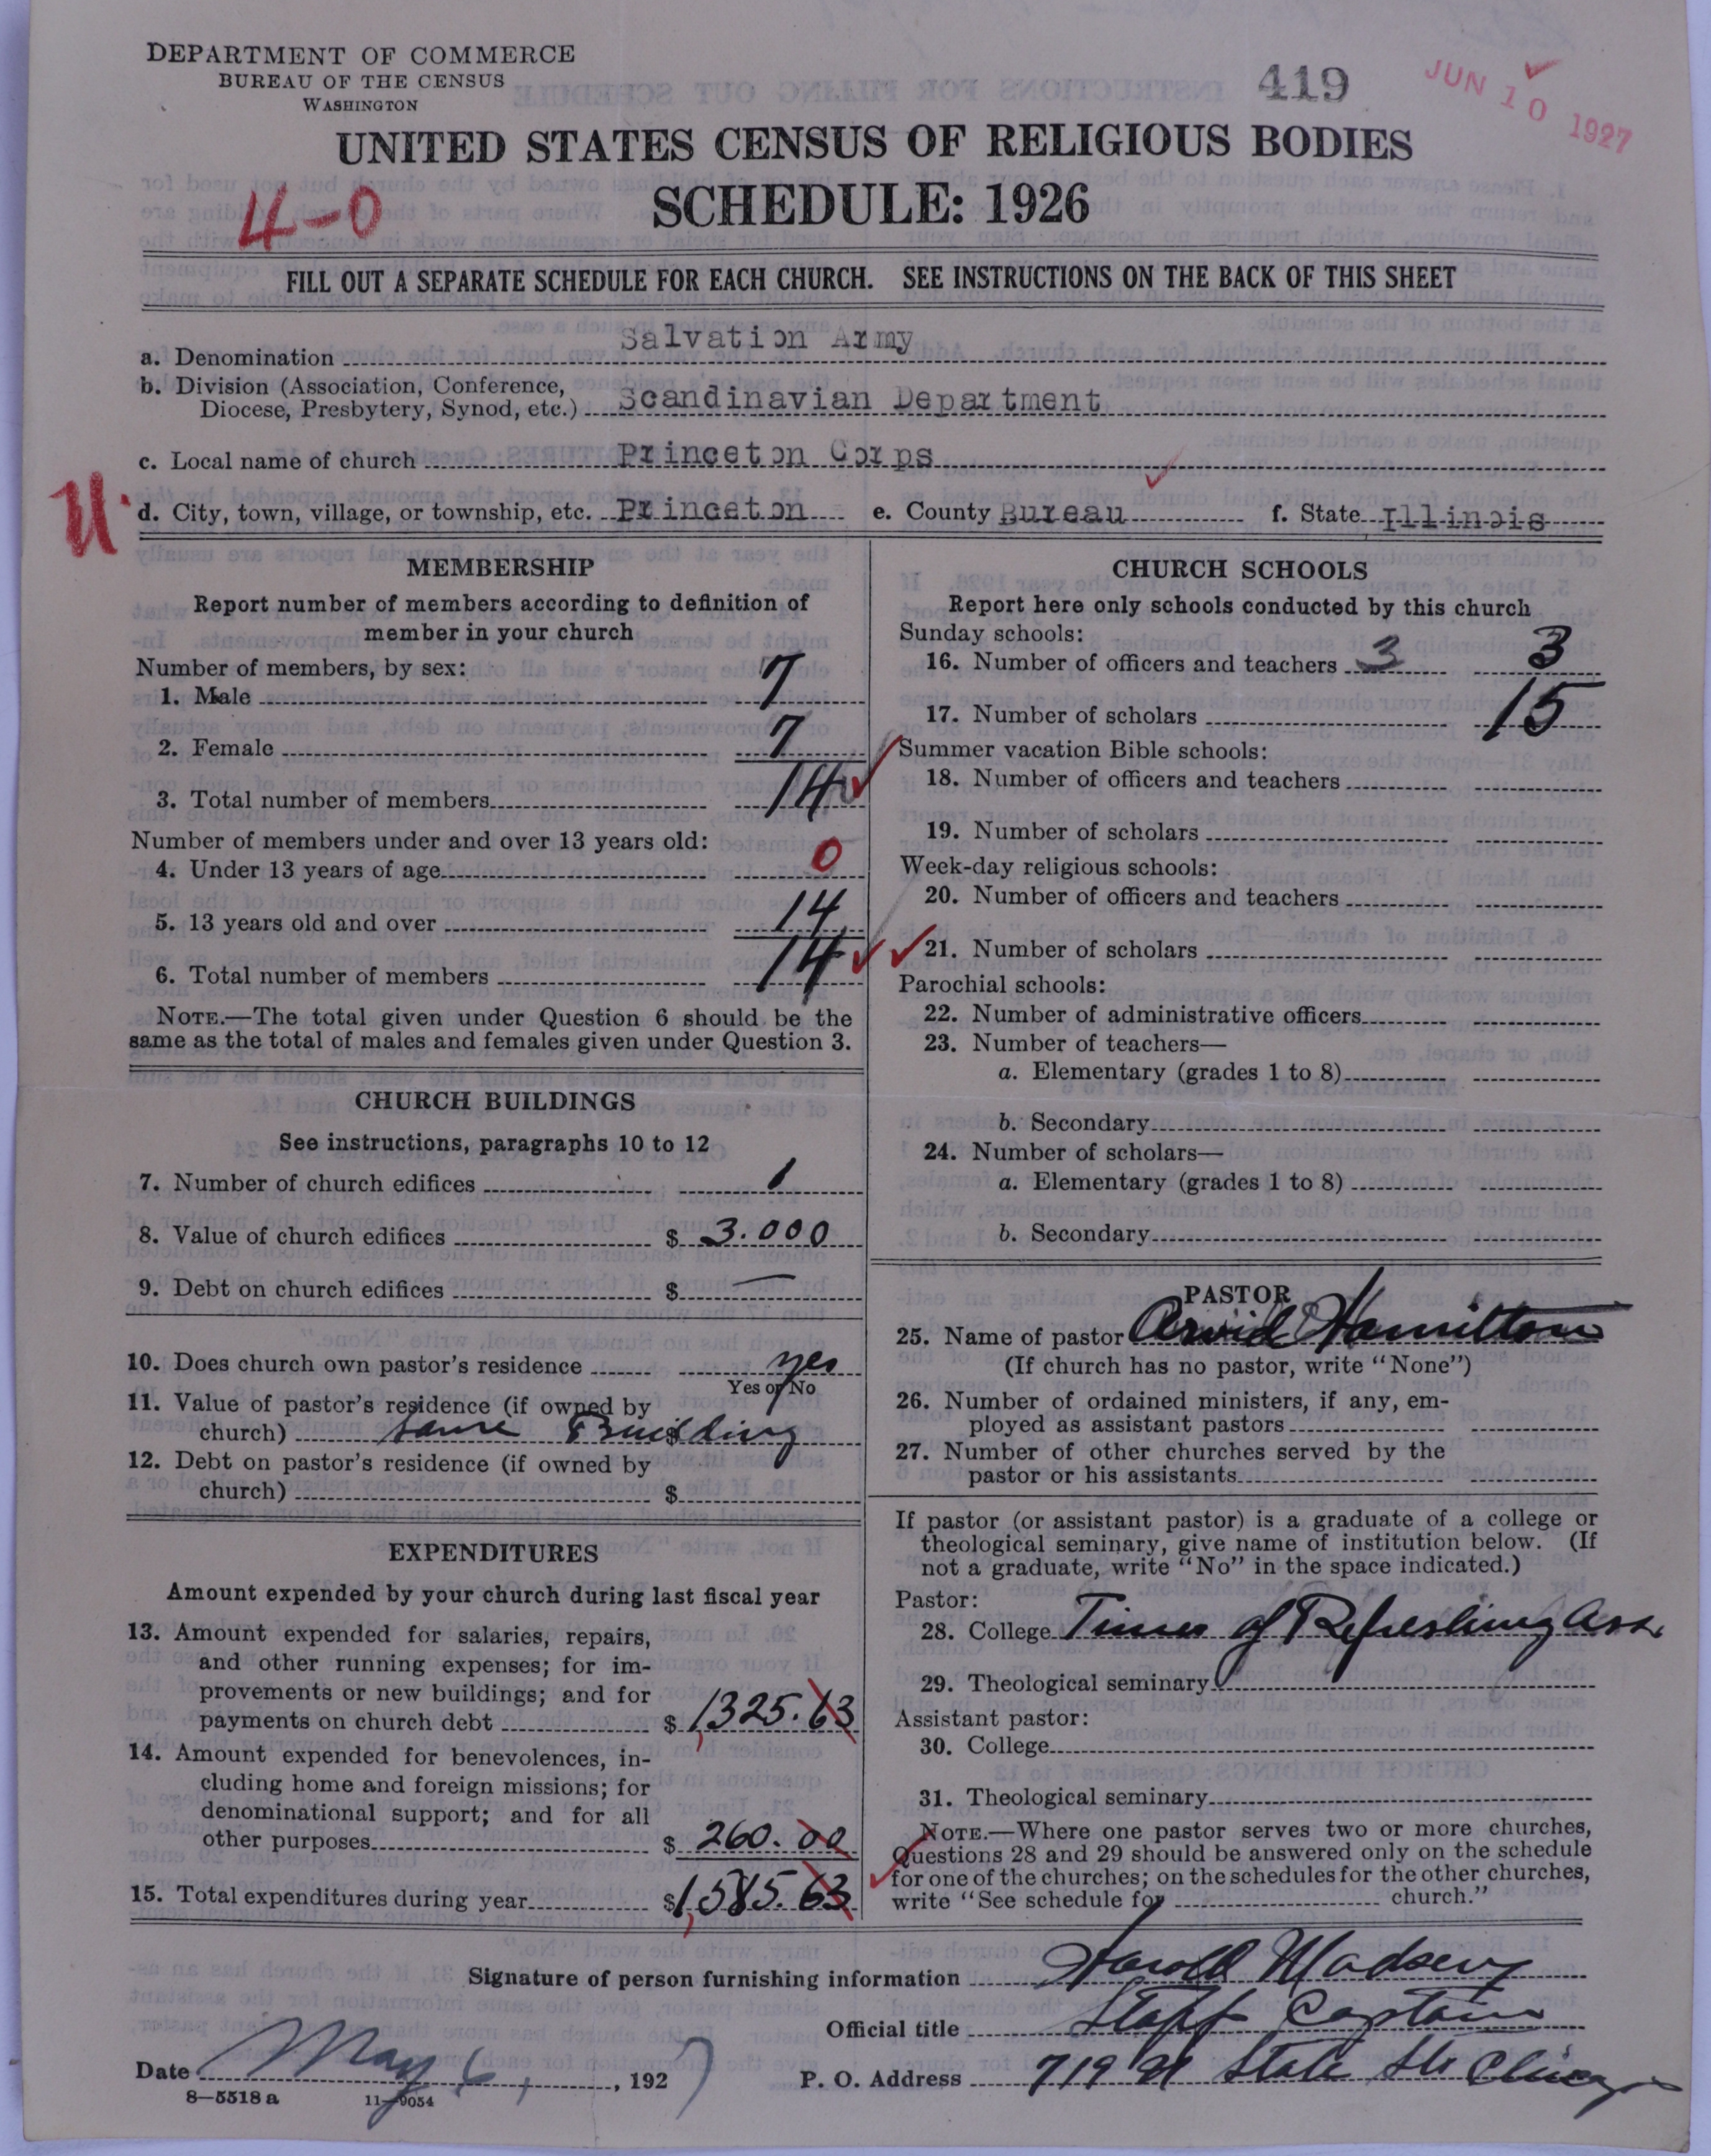 DEPARTMENT OF COMMERCE
BUREAU OF THE CENSUS
WASHINGTON
419
JUN 10 1927
UNITED STATES CENSUS OF RELIGIOUS BODIES
SCHEDULE: 1926
4-0
FILL OUT A SEPARATE SCHEDULE FOR EACH CHURCH. SEE INSTRUCTIONS ON THE BACK OF THIS SHEET
a. Denomination Salvation Army
b. Division (Association, Conference,
Diocese, Presbytery, Synod, etc.) Scandinavian Department
c. Local name of church Princeton Corps
d. City, town, village, or township, etc. Princeton e. County Bureau f. State Illinois
MEMBERSHIP
Report number of members according to definition of
member in your church
Number of members, by sex:
1. Male 7
2. Female 7
3. Total number of members 14
Number of members under and over 13 years old:
4. Under 13 years of age 0
5. 13 years old and over 14
6. Total number of members 14
NOTE.—The total given under Question 6 should be the
same as the total of males and females given under Question 3.
CHURCH BUILDINGS
See instructions, paragraphs 10 to 12
7. Number of church edifices 1
8. Value of church edifices $ 3.000
9. Debt on church edifices $ —
10. Does church own pastor's residence yes
Yes or No
11. Value of pastor's residence (if owned by
church) same Building $
12. Debt on pastor's residence (if owned by
church) $
EXPENDITURES
Amount expended by your church during last fiscal year
13. Amount expended for salaries, repairs,
and other running expenses; for im-
provements or new buildings; and for
payments on church debt $ 1,325.63
14. Amount expended for benevolences, in-
cluding home and foreign missions; for
denominational support; and for all
other purposes $ 260.00
15. Total expenditures during year $1,585.63
CHURCH SCHOOLS
Report here only schools conducted by this church
Sunday schools:
16. Number of officers and teachers 3 3
17. Number of scholars 15
Summer vacation Bible schools:
18. Number of officers and teachers
19. Number of scholars
Week-day religious schools:
20. Number of officers and teachers
21. Number of scholars
Parochial schools:
22. Number of administrative officers
23. Number of teachers—
a. Elementary (grades 1 to 8)
b. Secondary
24. Number of scholars—
a. Elementary (grades 1 to 8)
b. Secondary
PASTOR
25. Name of pastor Arvid Hamilton
(If church has no pastor, write "None")
26. Number of ordained ministers, if any, em-
ployed as assistant pastors
27. Number of other churches served by the
pastor or his assistants
If pastor (or assistant pastor) is a graduate of a college or
theological seminary, give name of institution below. (If
not a graduate, write "No" in the space indicated.)
Pastor:
28. College Times of Refreshing Ass.
29. Theological seminary
Assistant pastor:
30. College
31. Theological seminary
NOTE.—Where one pastor serves two or more churches,
Questions 28 and 29 should be answered only on the schedule
for one of the churches; on the schedules for the other churches,
write "See schedule for church."
Signature of person furnishing information Harold Madsen
Official title Staff Captain
Date May 6, 1927 P. O. Address 719 N State Str Chicago
8—5518 a 11—9054